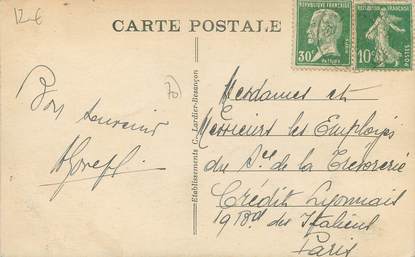 12€
CARTE POSTALE
REPUBLIQUE FRANCAISE
30c
PASTEUR
REPUBLIQUE FRANCAISE
10c
POSTES
70
Bon souvenir
Etablissements C. Lardier-Besançon
Mesdames et
Messieurs les Employés
du Sce de la Trésorerie
Crédit Lyonnais
19 Bd des Italiens
Paris